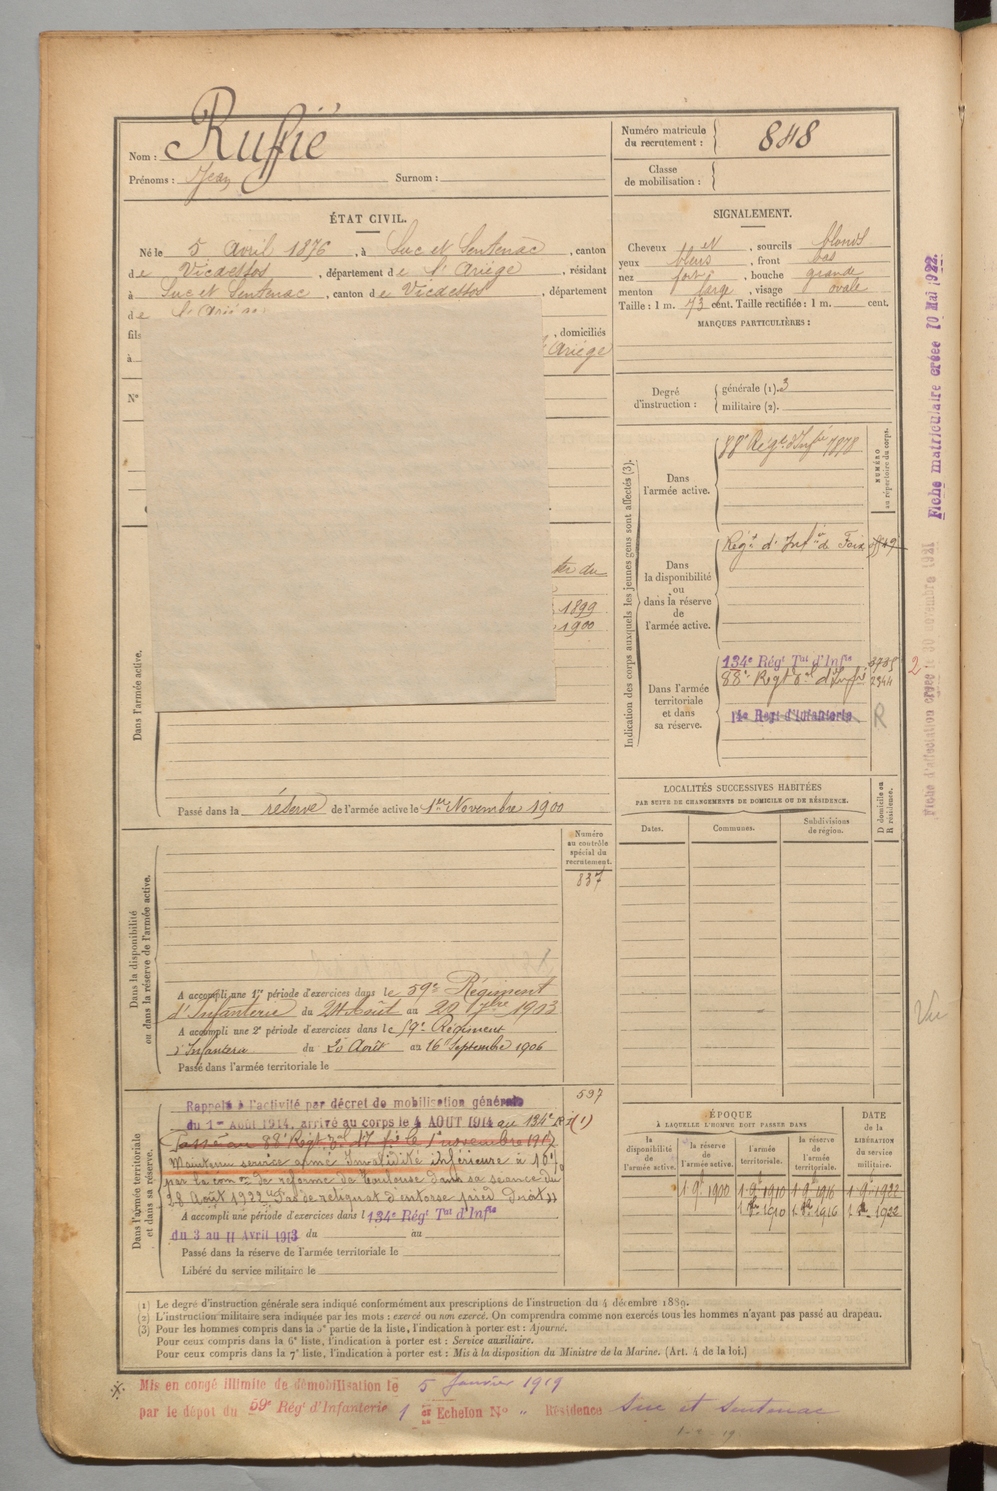 Nom : Ruffié
Prénoms : Jean Surnom :
Numéro matricule du recrutement : 848
Classe de mobilisation :
ÉTAT CIVIL.
Né le 5 Avril 1876, à Suc et Sentenac, canton
de Vicdessos, département de l'Ariège, résidant
à Suc et Sentenac, canton de Vicdessos, département
de l'Ariège
fils , domiciliés
à l'Ariège
N°
SIGNALEMENT.
Cheveux , sourcils blonds
yeux bleus, front bas
nez fort, bouche grande
menton large, visage ovale
Taille : 1 m. 73 cent. Taille rectifiée : 1 m. cent.
MARQUES PARTICULIÈRES :
Degré d'instruction : générale (1). 3
militaire (2).
Indication des corps auxquels les jeunes gens sont affectés (3).
NUMÉRO au répertoire du corps.
Dans l'armée active.
88e Régt d'Infie 7878
Dans la disponibilité ou dans la réserve de l'armée active.
Régt d'Infie de Foix
Dans l'armée territoriale et dans sa réserve.
134e Régt Tal d'Infie
88e Régt d'Infie 2344
14e Régt d'Infanterie R
2
Dans l'armée active.
du
1899
1900
Passé dans la réserve de l'armée active le 1er Novembre 1900
LOCALITÉS SUCCESSIVES HABITÉES
PAR SUITE DE CHANGEMENTS DE DOMICILE OU DE RÉSIDENCE.
Dates. Communes. Subdivisions de région. D domicile ou R résidence.
Dans la disponibilité ou dans la réserve de l'armée active.
Numéro au contrôle spécial du recrutement.
837
A accompli une 1re période d'exercices dans le 59e Régiment
d'Infanterie du 24 Août au 20 7bre 1903
A accompli une 2e période d'exercices dans le 59e Régiment
d'Infanterie du 20 Août au 16 Septembre 1906
Passé dans l'armée territoriale le
Dans l'armée territoriale et dans sa réserve.
597
Rappelé à l'activité par décret de mobilisation générale
du 1er Août 1914, arrivé au corps le 4 AOUT 1914 au 134e R.I (1)
Passé au 88e Régt le 1er novembre 1917
Maintenu service armé Invalidité inférieure à 10%
par la comon de réforme de Toulouse dans sa séance du
28 Août 1922 "Pas de reliquat d'entorse pied droit"
A accompli une période d'exercices dans l 134e Régt Tal d'Infie
du 3 au 11 Avril 1913 du au
Passé dans la réserve de l'armée territoriale le
Libéré du service militaire le
ÉPOQUE
À LAQUELLE L'HOMME DOIT PASSER DANS
DATE DE LA LIBÉRATION du service militaire.
la disponibilité de l'armée active. la réserve de l'armée active. l'armée territoriale. la réserve de l'armée territoriale.
1 9bre 1900 1 9bre 1910 1 9bre 1916 1 9bre 1922
1 8bre 1910 1 8bre 1916 1 8bre 1922
(1) Le degré d'instruction générale sera indiqué conformément aux prescriptions de l'instruction du 4 décembre 1889.
(2) L'instruction militaire sera indiquée par les mots : exercé ou non exercé. On comprendra comme non exercés tous les hommes n'ayant pas passé au drapeau.
(3) Pour les hommes compris dans la 5e partie de la liste, l'indication à porter est : Ajourné.
Pour ceux compris dans la 6e liste, l'indication à porter est : Service auxiliaire.
Pour ceux compris dans la 7e liste, l'indication à porter est : Mis à la disposition du Ministre de la Marine. (Art. 4 de la loi.)
Mis en congé illimité de démobilisation le 5 Janvier 1919
par le dépot du 59e Régt d'Infanterie 1er Echelon No " Résidence Suc et Sentenac
Fiche matriculaire créée 10 Mai 1922.
Fiche d'affectation créée le 30 novembre 1921
Vu